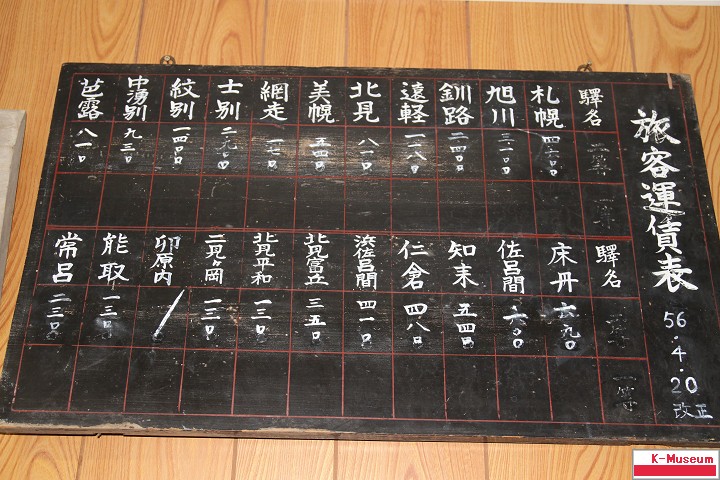 旅客運賃表
56.4.20
改正
驛名 二等 一等
札幌 四二〇〇
旭川 三一〇〇
釧路 二四〇〇
遠軽 一一八〇
北見 八一〇
美幌 五四〇
網走
士別 二九〇〇
紋別 一四〇〇
中湧別 九三〇
芭露 八一〇
驛名 二等 一等
床丹 六九〇
佐呂間 六〇〇
知来 五四〇
仁倉 四八〇
浜佐呂間 四一〇
北見富丘 三五〇
北見平和 一三〇
二見ヶ岡 一三〇
卯原内
能取 一三〇
常呂 二三〇
K-Museum